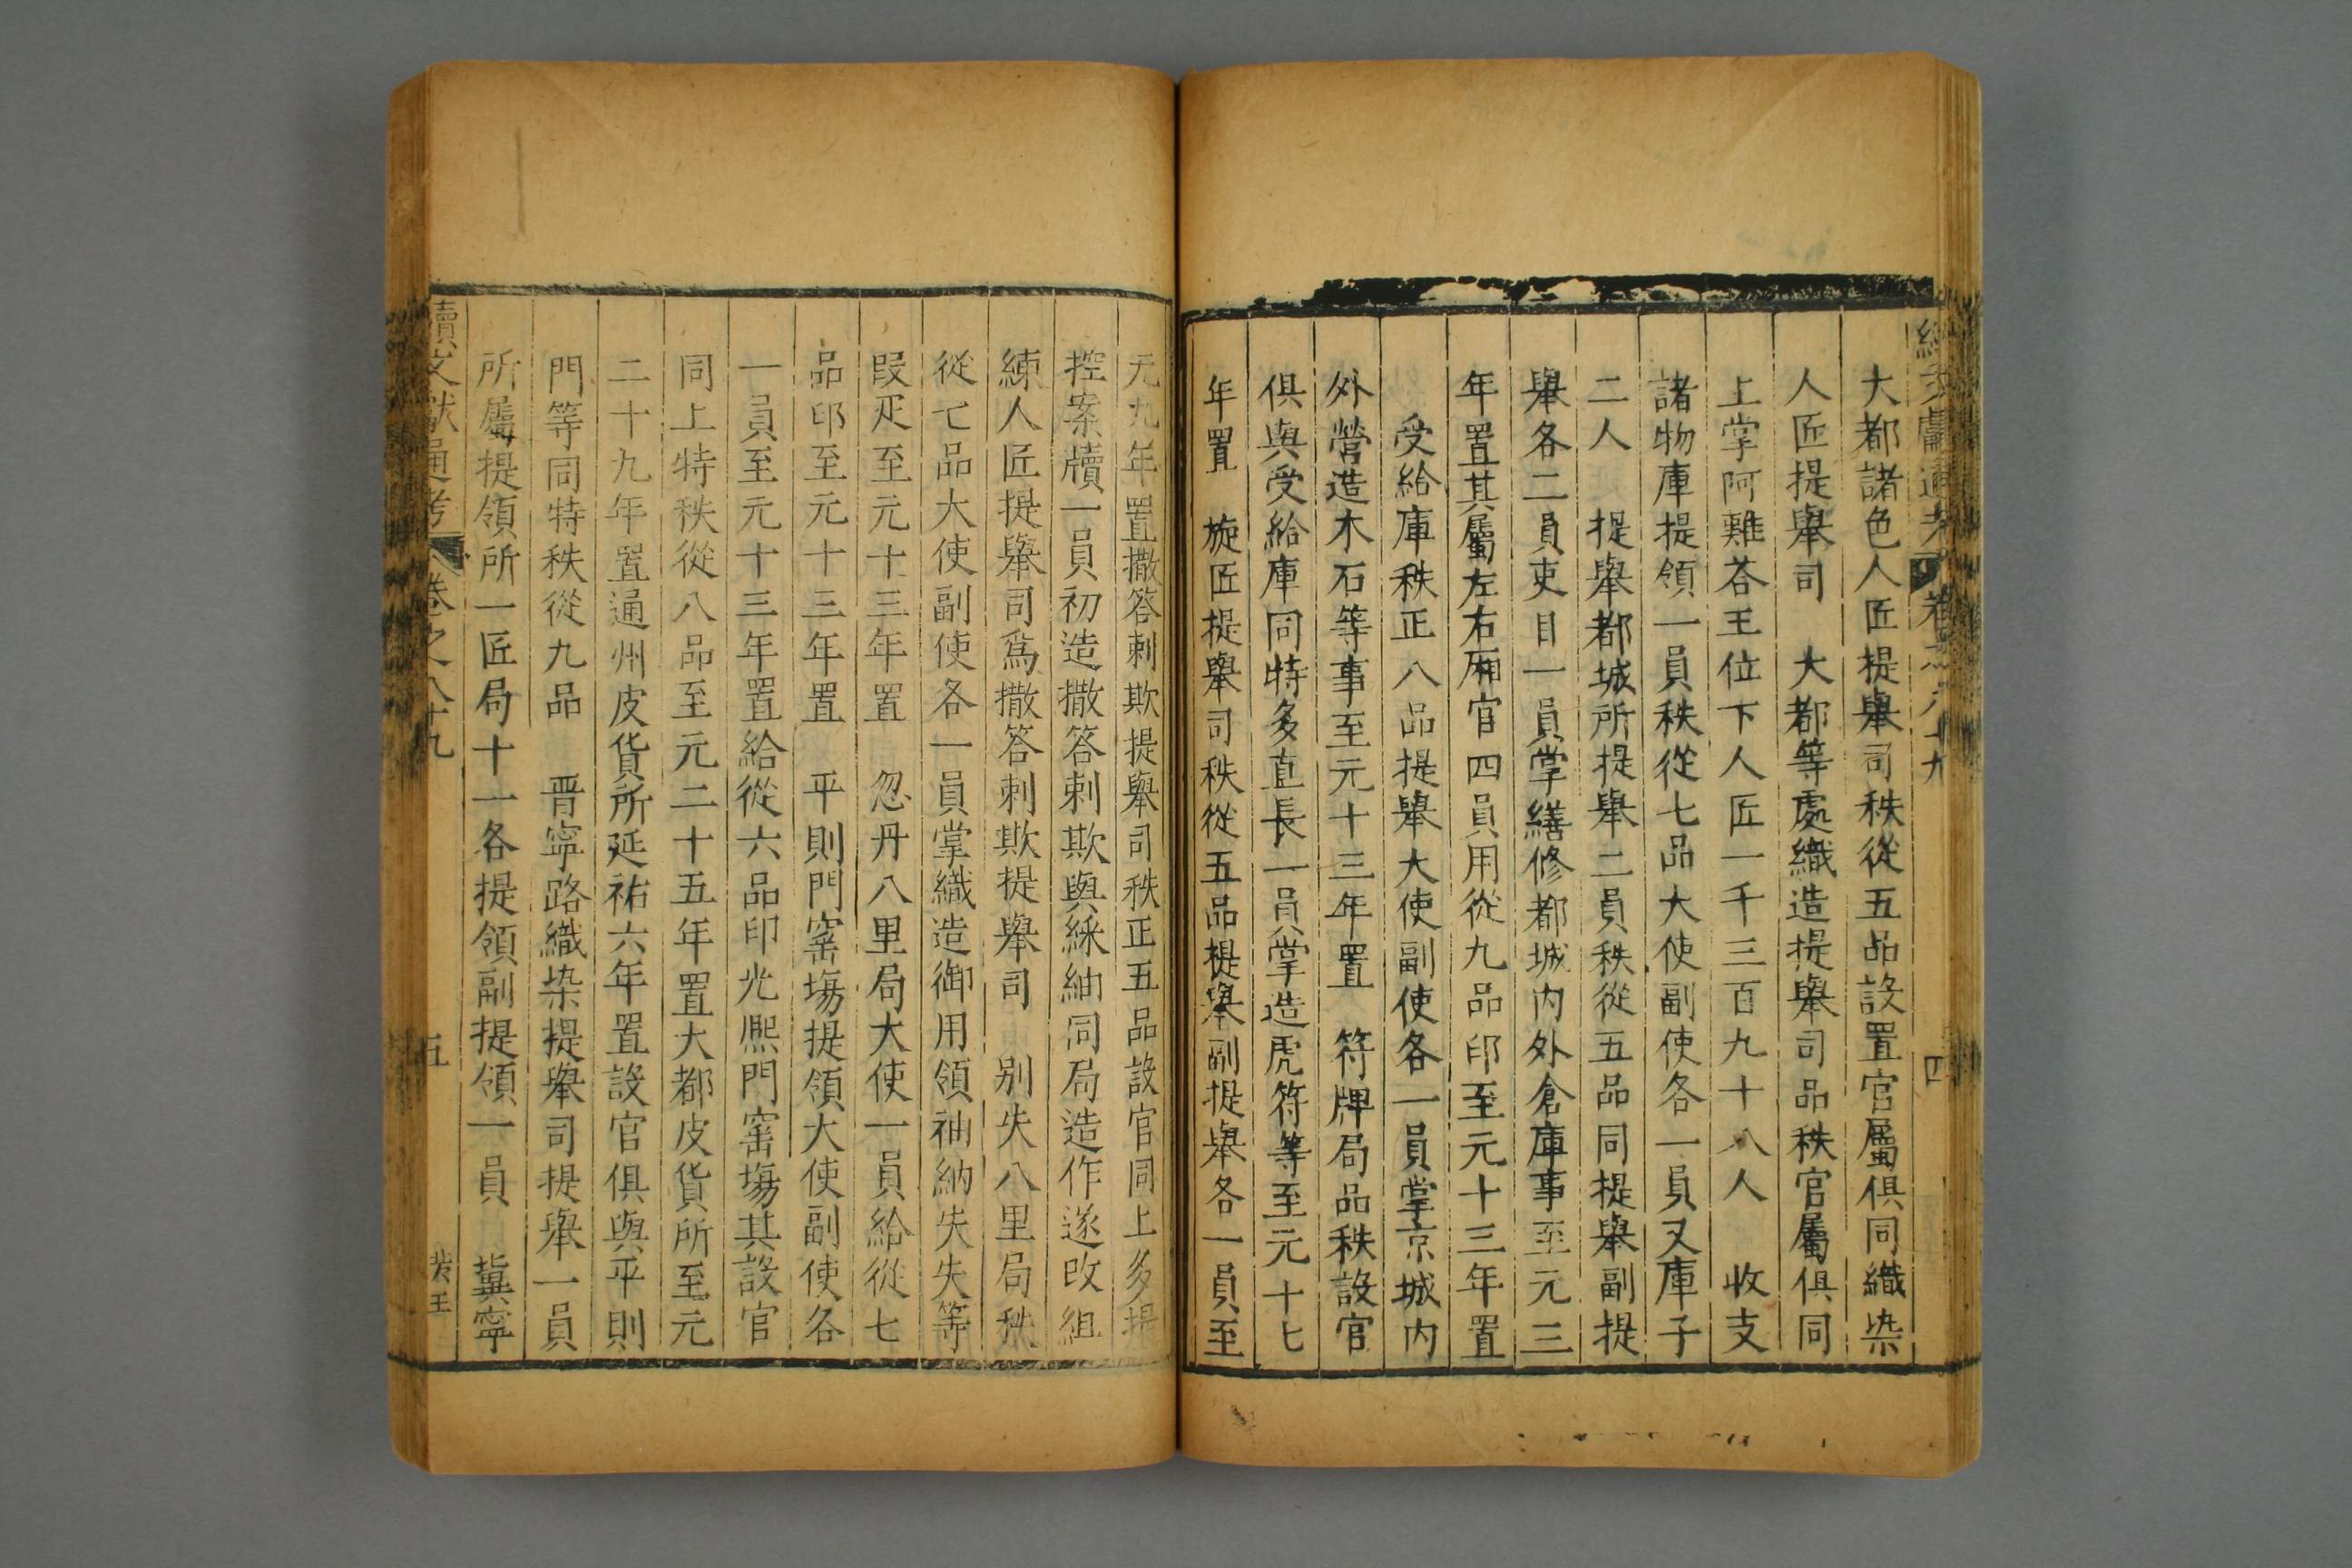 續文獻通考 卷之八十九 四
大都諸色人匠提舉司秩從五品設置官屬俱同織染
人匠提舉司 大都等處織造提舉司品秩官屬俱同
上掌阿難荅王位下人匠一千三百九十八人 收支
諸物庫提領一員秩從七品大使副使各一員又庫子
二人 提舉都城所提舉二員秩從五品同提舉副提
舉各二員吏目一員掌繕修都城内外倉庫事至元三
年置其屬左右廂官四員用從九品印至元十三年置
受給庫秩正八品提舉大使副使各一員掌京城内
外營造木石等事至元十三年置 符牌局品秩設官
俱與受給庫同特多直長一員掌造虎符等至元十七
年置 旋匠提舉司秩從五品提舉副提舉各一員至
元九年置撒答剌欺提舉司秩正五品設官同上多提
控案牘一員初造撒答剌欺與綵紬同局造作遂改組
練人匠提舉司爲撒答剌欺提舉司 别失八里局秩
從七品大使副使各一員掌織造御用領袖納失失等
段疋至元十三年置 忽丹八里局大使一員給從七
品印至元十三年置 平則門窰塲提領大使副使各
一員至元十三年置給從六品印光熈門窰塲其設官
同上特秩從八品至元二十五年置大都皮貨所至元
二十九年置通州皮貨所延祐六年置設官俱與平則
門等同特秩從九品 晋寧路織染提舉司提舉一員
所屬提領所一匠局十一各提領副提領一員 冀寧
續文獻通考 卷之八十九 五